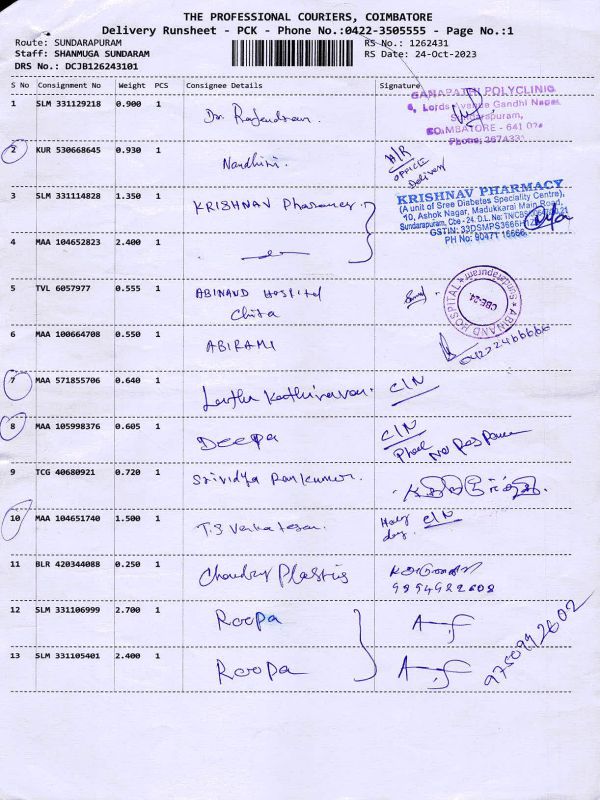 THE PROFESSIONAL COURIERS, COIMBATORE
Delivery Runsheet - PCK - Phone No.:0422-3505555 - Page No.:1
Route: SUNDARAPURAM
RS No.: 1262431
Staff: SHANMUGA SUNDARAM
RS Date: 24-Oct-2023
DRS No.: DCJB126243101
S No Consignment No Weight PCS Consignee Details Signature
1 SLM 331129218 0.900 1 Dr. Rajendran.
GANAPATHY POLYCLINIC
6, Lords Avenue Gandhi Nagar
Sundarapuram,
COIMBATORE - 641 024
Phone: 267433
2 KUR 530668645 0.930 1 Nandhini.
office
Delivery
3 SLM 331114828 1.350 1 KRISHNAV Pharmacy.
KRISHNAV PHARMACY
(A unit of Sree Diabetes Speciality Centre),
10, Ashok Nagar, Madukkarai Main Road,
Sundarapuram, Cbe - 24. D.L. No: TN/CB
GSTIN: 33DSMPS3666H
PH No: 90471 16666
4 MAA 104652823 2.400 1
5 TVL 6057977 0.555 1 ABINAND HOSPITAL
Chita
ABINAND HOSPITAL
Sundarapuram
CBE-24.
6 MAA 100664708 0.550 1 ABIRAMI
7 MAA 571855706 0.640 1 Kathiravan. C/N
8 MAA 105998376 0.605 1 DEEPA C/N
No Response
9 TCG 40680921 0.720 1 Srividya Ramkumar.
10 MAA 104651740 1.500 1 T.S Venkatesan. C/N
11 BLR 420344088 0.250 1 Plastics
12 SLM 331106999 2.700 1 Roopa
13 SLM 331105401 2.400 1 Roopa
9750942602